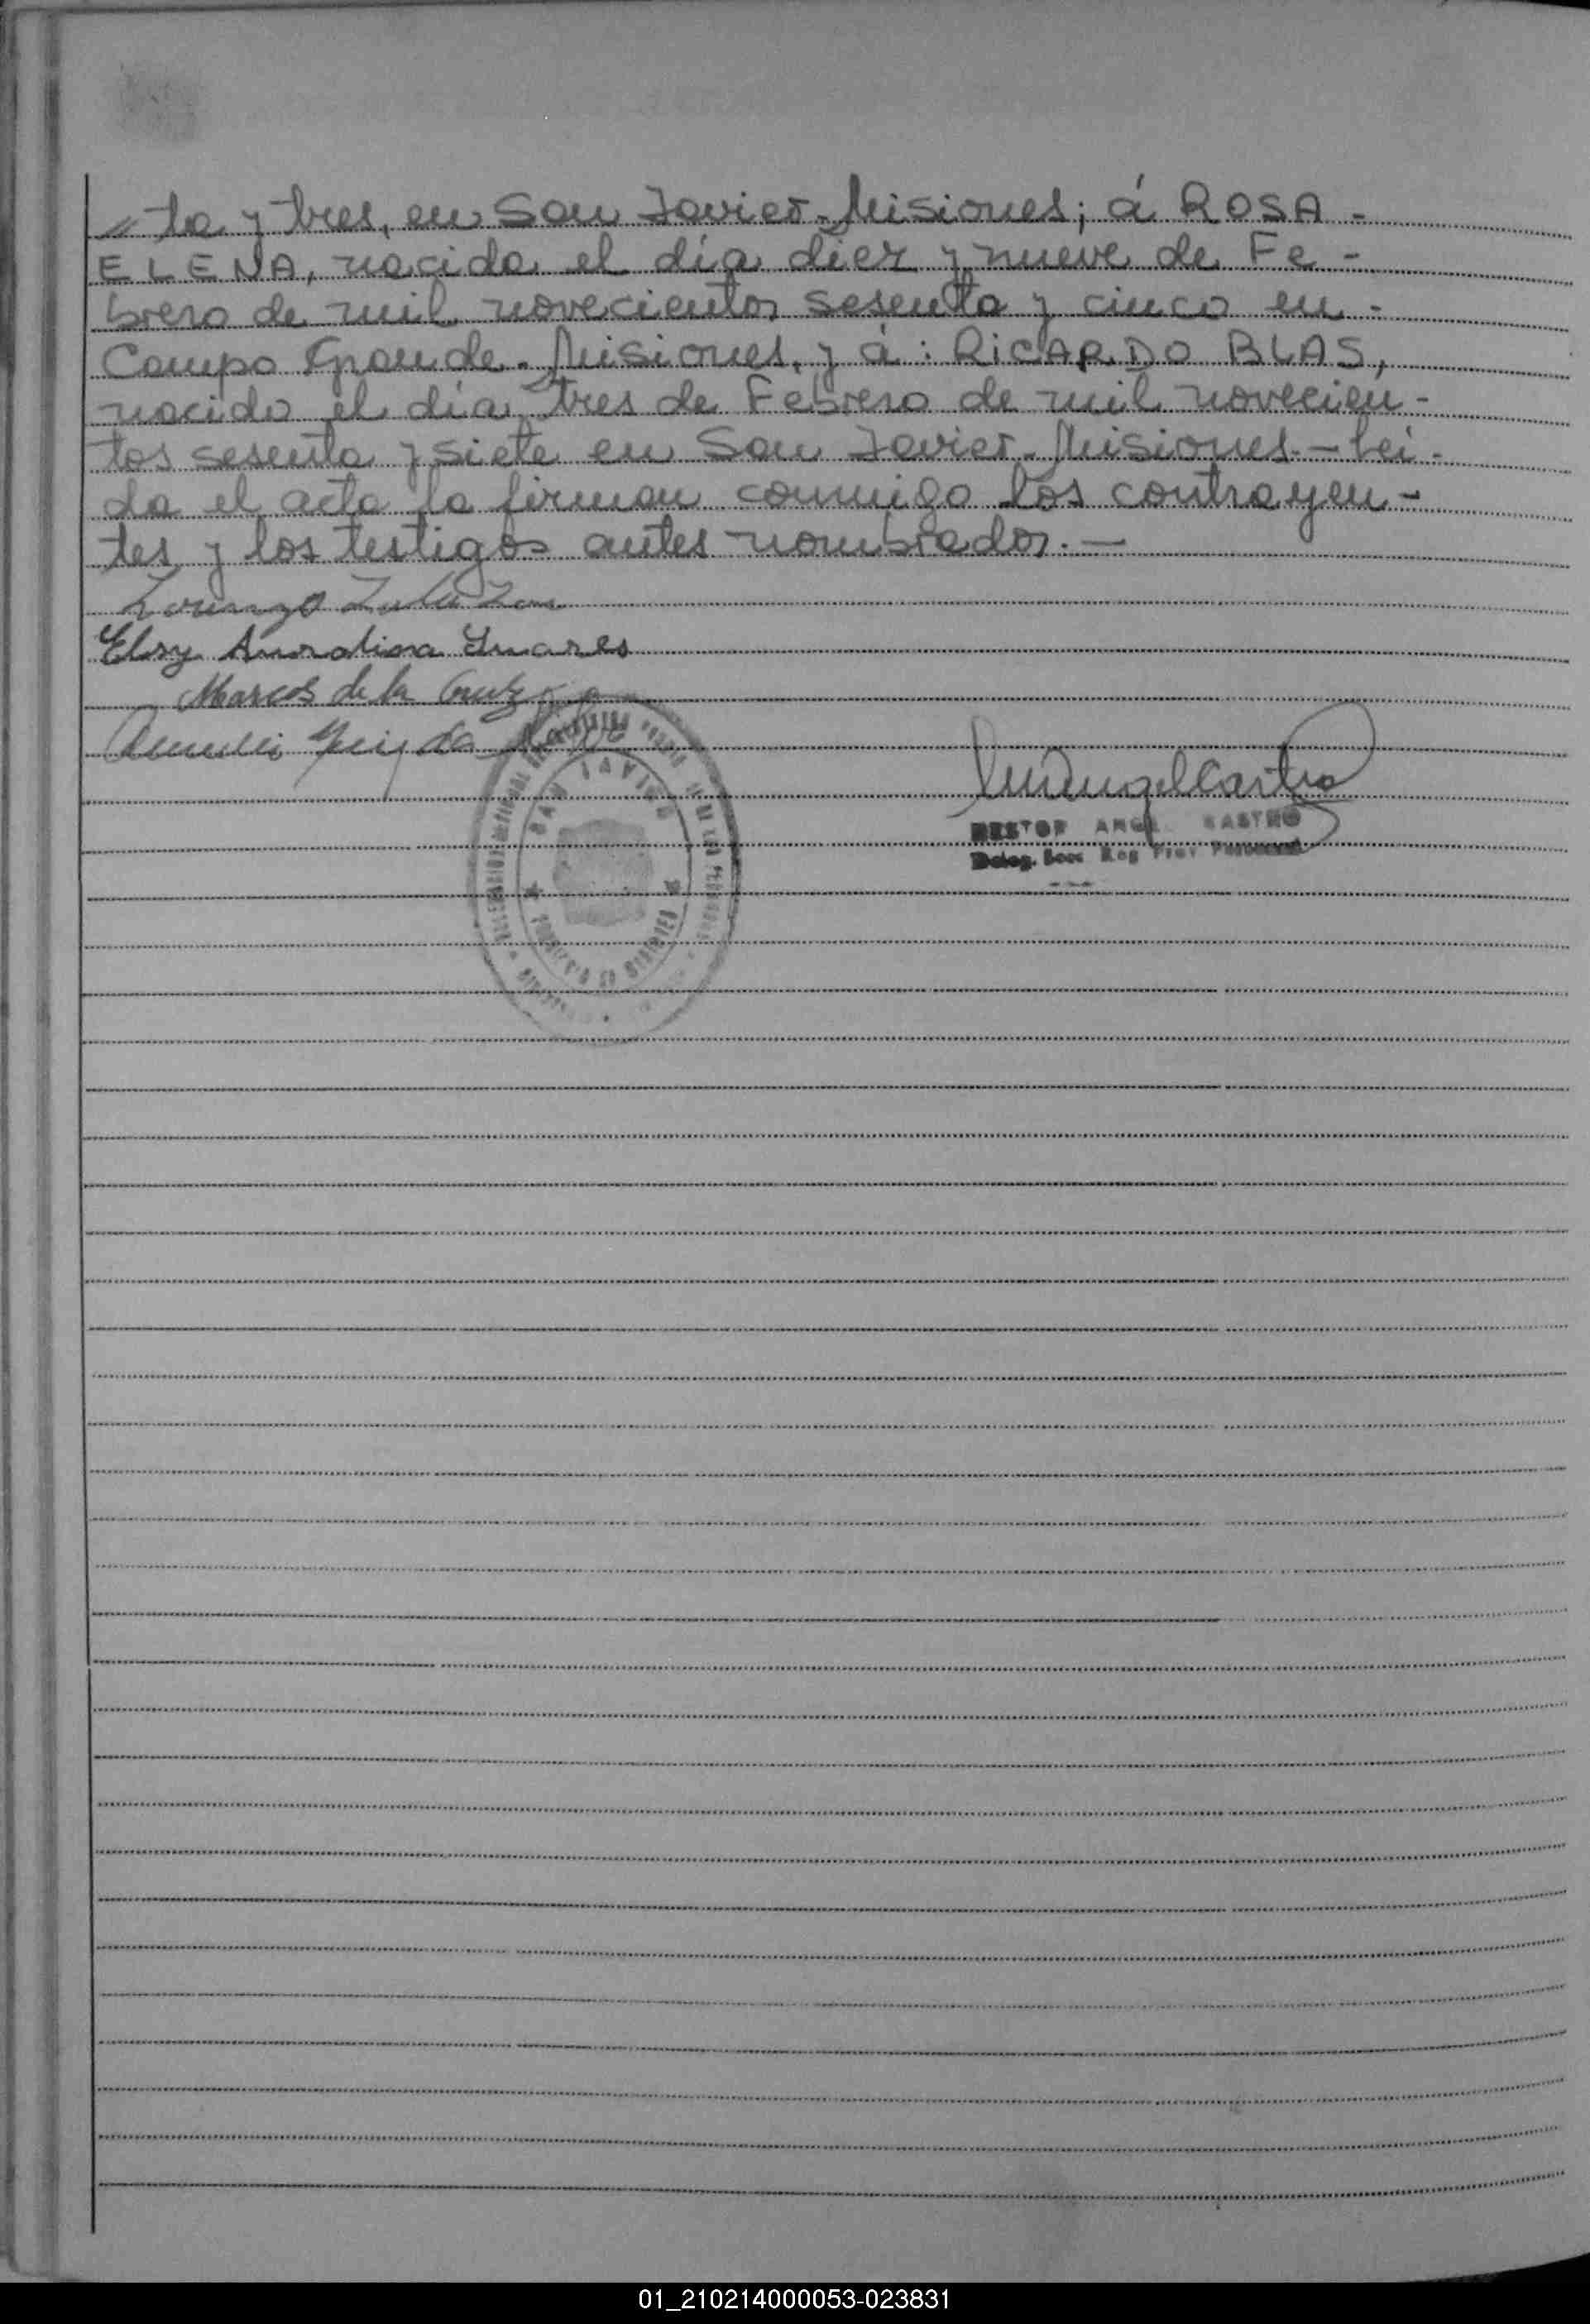 ta y tres, en San Javier - Misiones; á ROSA -
ELENA, nacida el día diez y nueve de Fe -
brero de mil novecientos sesenta y cinco en -
Campo Grande - Misiones, y á: RICARDO BLAS,
nacido el día tres de Febrero de mil novecien -
tos sesenta y siete en San Javier - Misiones. - Lei -
da el acta la firman conmigo los contrayen -
tes y los testigos antes nombrados. -
Lorenzo
Elsy Auralina Suares
Marcos de la Cruz
SAN JAVIER
PROVINCIA DE MISIONES
NESTOR ANGEL CASTRO
Deleg. Secc Reg Prov
01_210214000053-023831